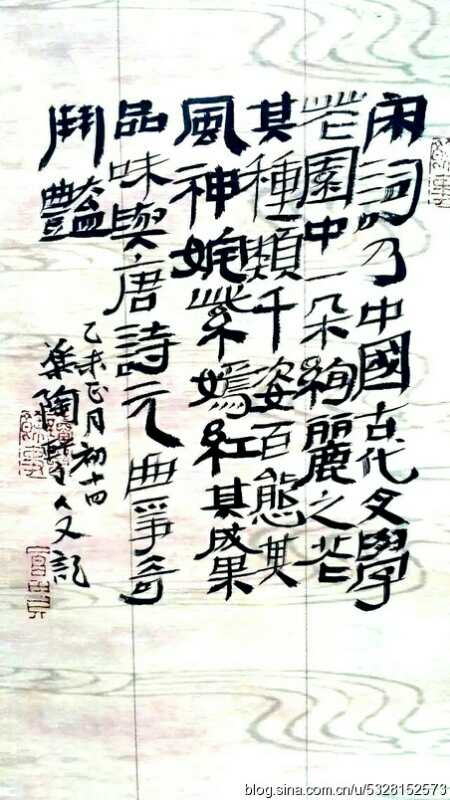 宋词乃中國古代文學
芲園中一朵绚麗之芲
其種類千姿百態其
風神姹紫嫣紅其成果
品味與唐詩元曲爭奇
鬥豔
乙未正月初十四
樂陶人又記
blog.sina.com.cn/u/5328152573